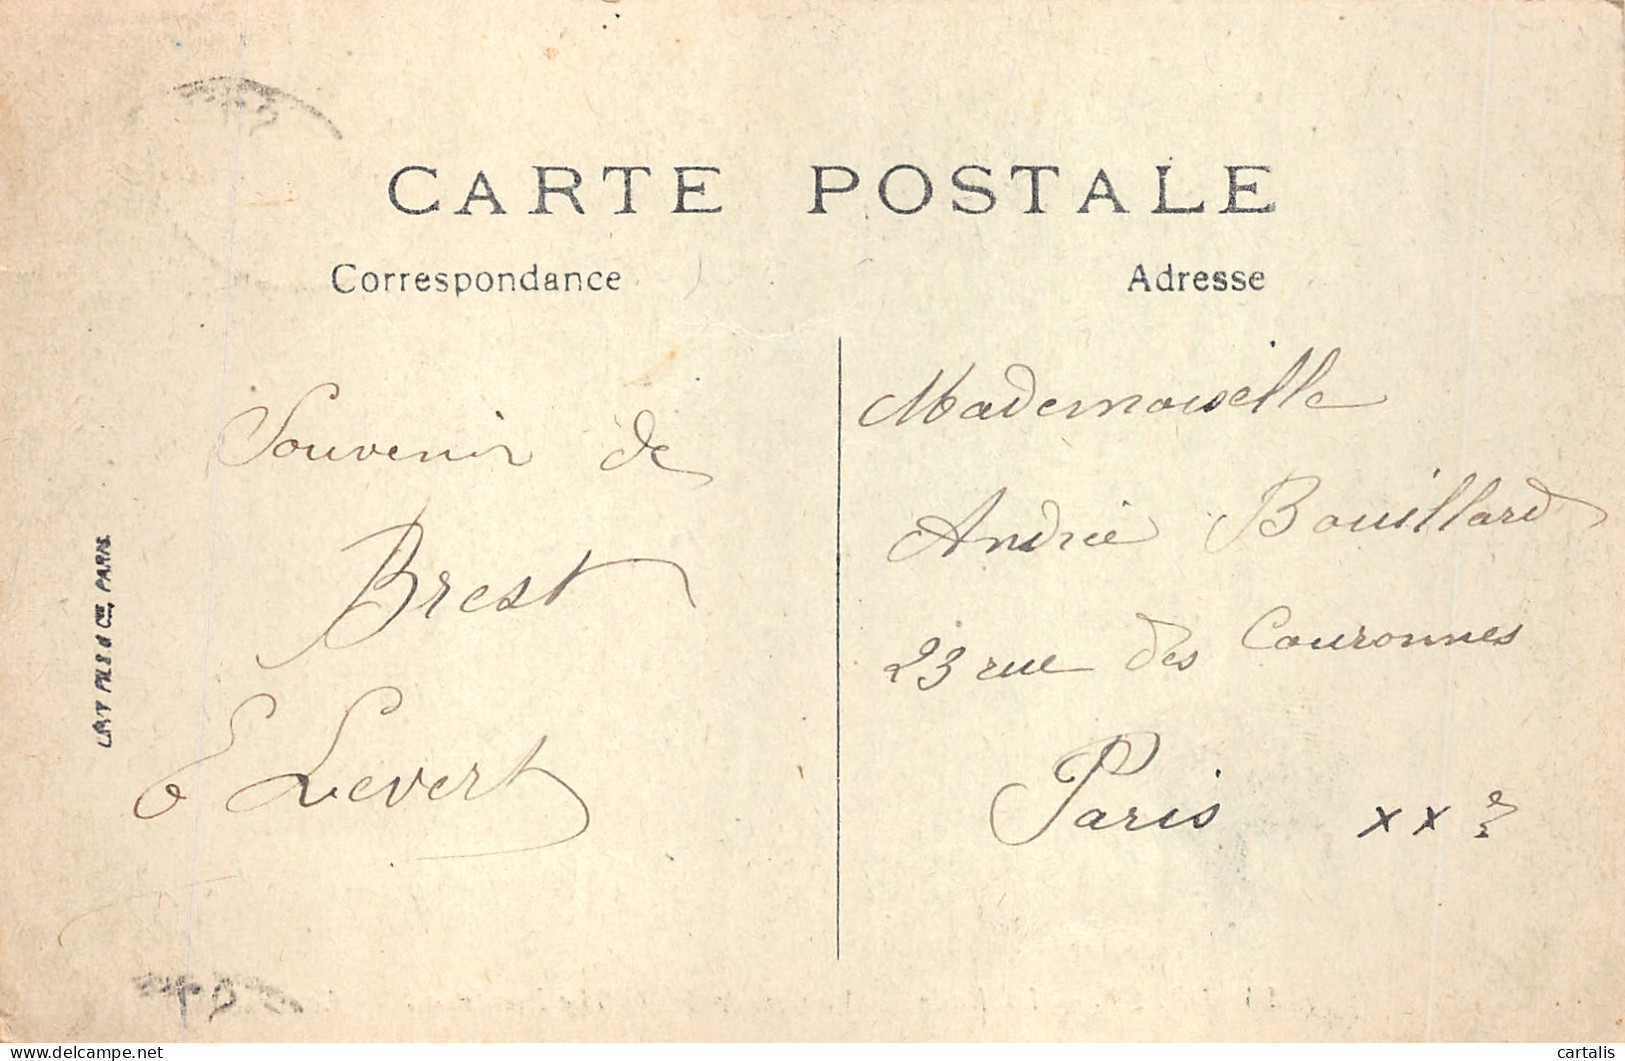 CARTE POSTALE
Correspondance
Adresse
Souvenir de
Brest
E Levert
LÉVY FILS & Cie, PARIS.
Mademoiselle
Andrée Bouillard
23 rue des Couronnes
Paris xx e
delcampe.net
cartalis